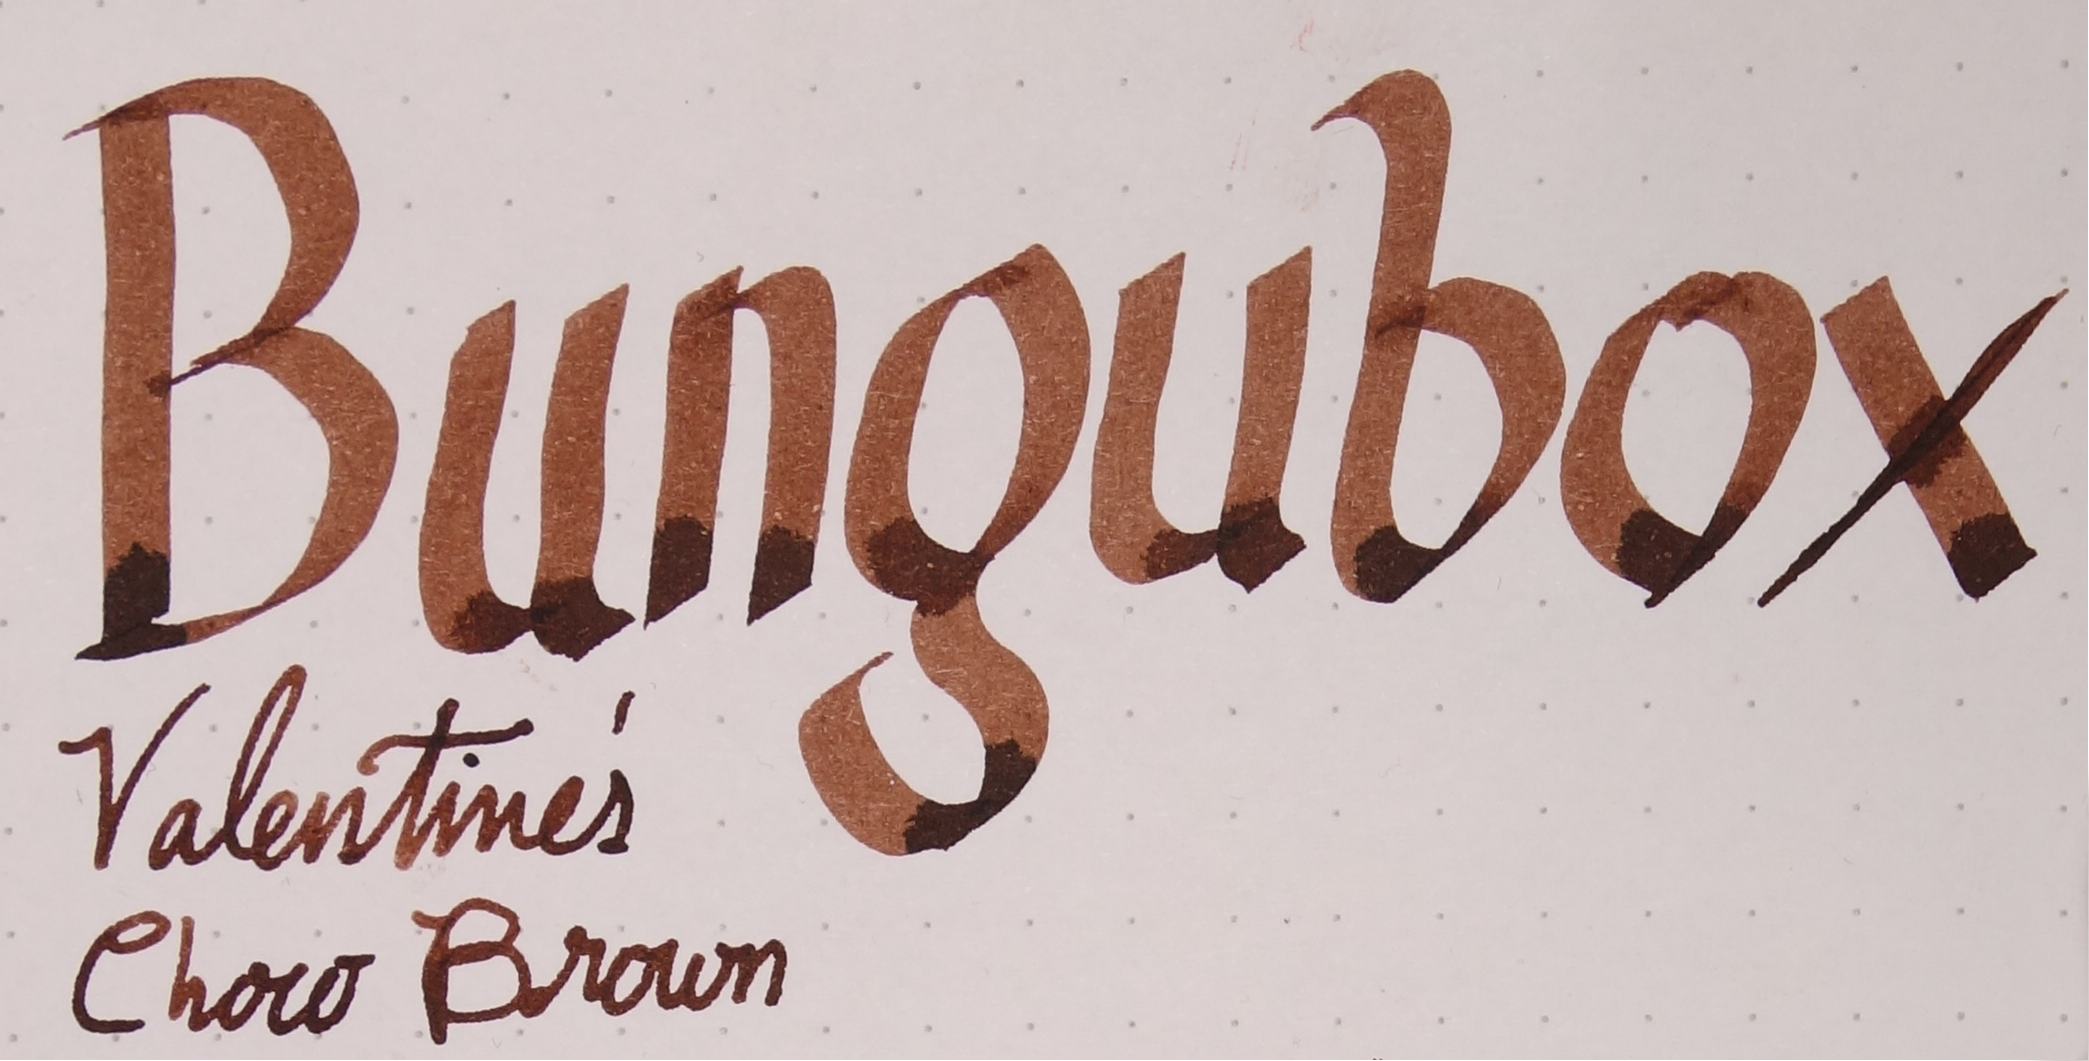 Bungubox
Valentine's
Choco Brown